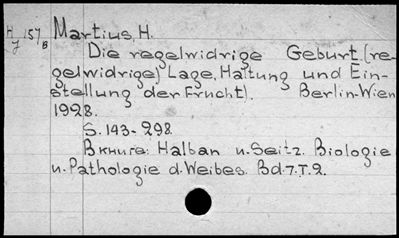 H 157 Martius, H.
y B
Die regelwidrige Geburt.(re-
gelwidrige) Lage, Haltung und Ein-
stellung der Frucht). Berlin-Wien
1928.
S. 143-298.
В книге: Halban u. Seitz. Biologie
u. Pathologie d. Weibes. Bd. 7. T. 2.